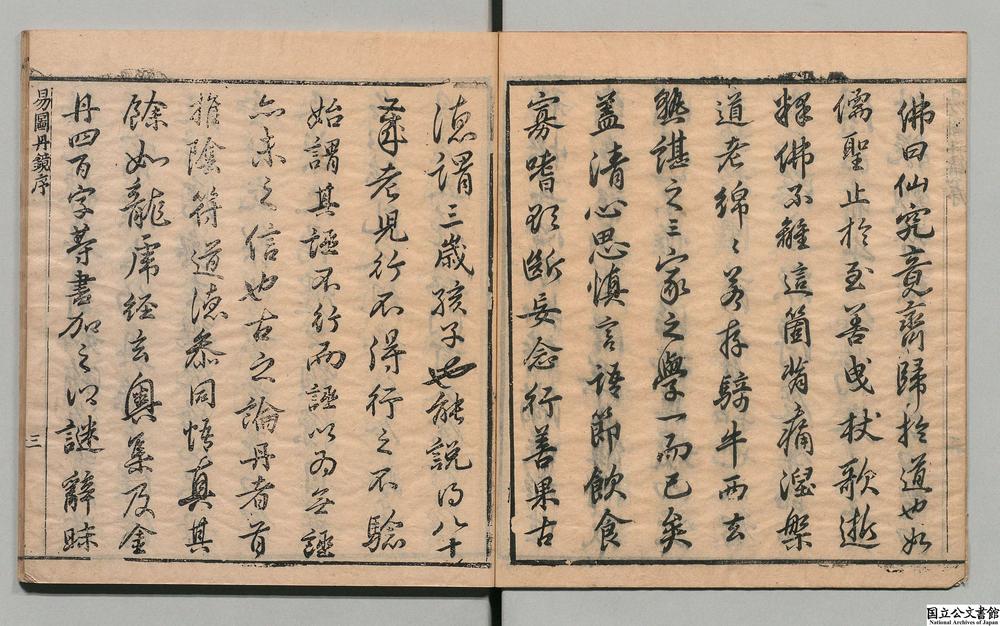 佛曰仙究竟齊歸於道也如
儒聖止於至善曳杖歌逝
釋佛不離這箇背痛涅槃
道老綿〻若存騎牛西去
孰謀之三家之學一而已矣
蓋清心思慎言語節飲食
寡嗜欲斷妄念行善果古
德謂三歲孩子也能說得八十
年老兒行不得行之不驗
始謂其誣不行而誣以為無誣
亦未之信也古之論丹者首
推陰符道德參同悟真其
餘如龍虎經玄奧集及金
丹四百字等書加之以謎辭昧
易圖丹鏡序
三
国立公文書館
National Archives of Japan